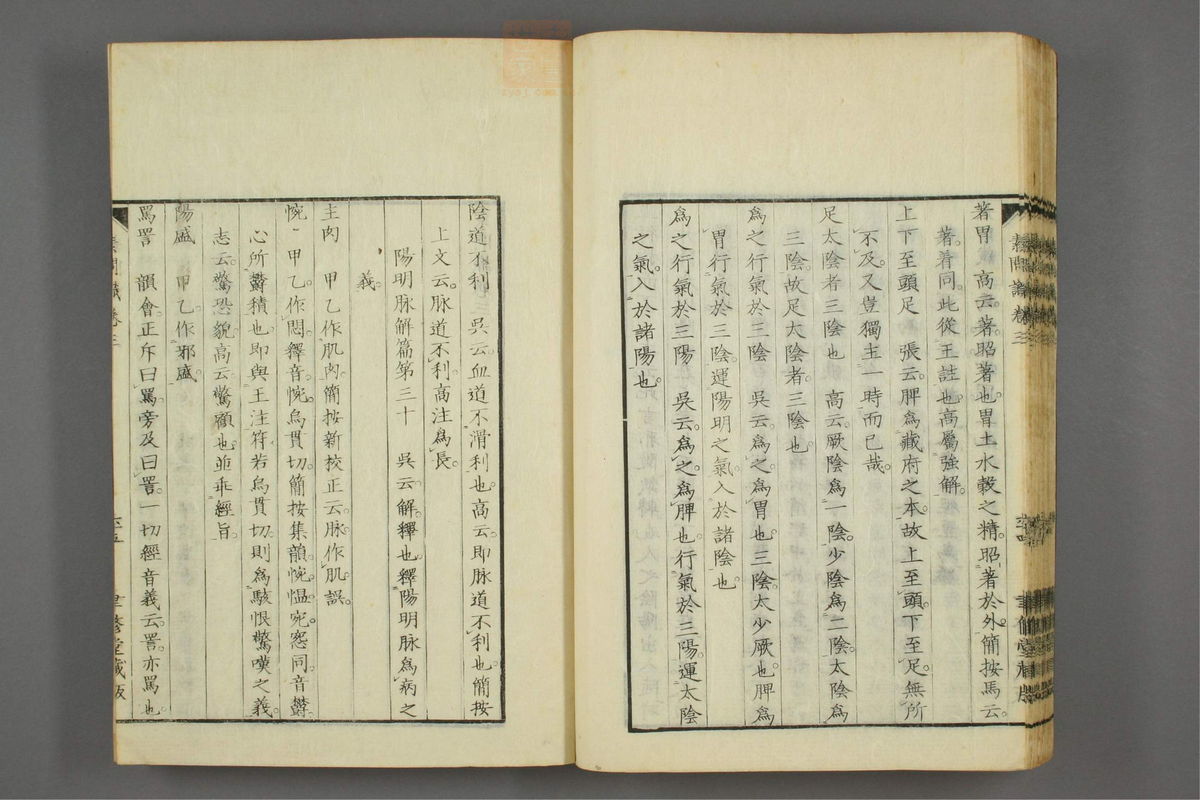 著胃　高云。著。昭著也。胃土水穀之精。昭著於外。簡按馬云。
著。着同。此從王註也。高屬強解。
上下至頭足　張云。脾爲藏府之本。故上至頭。下至足。無所
不及。又豈獨主一時而已哉。
足太陰者三陰也　高云。厥陰爲一陰。少陰爲二陰。太陰爲
三陰。故足太陰者。三陰也
爲之行氣於三陰　吳云。爲之。爲胃也。三陰。太少厥也。脾爲
胃行氣於三陰。運陽明之氣。入於諸陰也
爲之行氣於三陽　吳云。爲之。爲脾也。行氣於三陽。運太陰
之氣。入於諸陽也。
陰道不利　吳云。血道不滑利也。高云。即脉道不利也。簡按
上文云。脉道不利。高注爲長。
陽明脉解篇第三十　吳云。解。釋也。釋陽明脉爲病之
義。
主肉　甲乙作肌肉。簡按新校正云。脉作肌。誤。
惋　甲乙作悶。釋音。惋。烏貫切。簡按集韻。惋。愠。宛。窓同音鬱。
心所鬱積也。即與王注符。若烏貫切。則爲駭恨驚嘆之義
志云。驚恐貌。高云。驚顧也。並乖經旨。
陽盛　甲乙。作邪盛。
罵詈　韻會。正斥曰罵。旁及曰詈。一切經音義云。詈。亦罵也。
素問識卷三